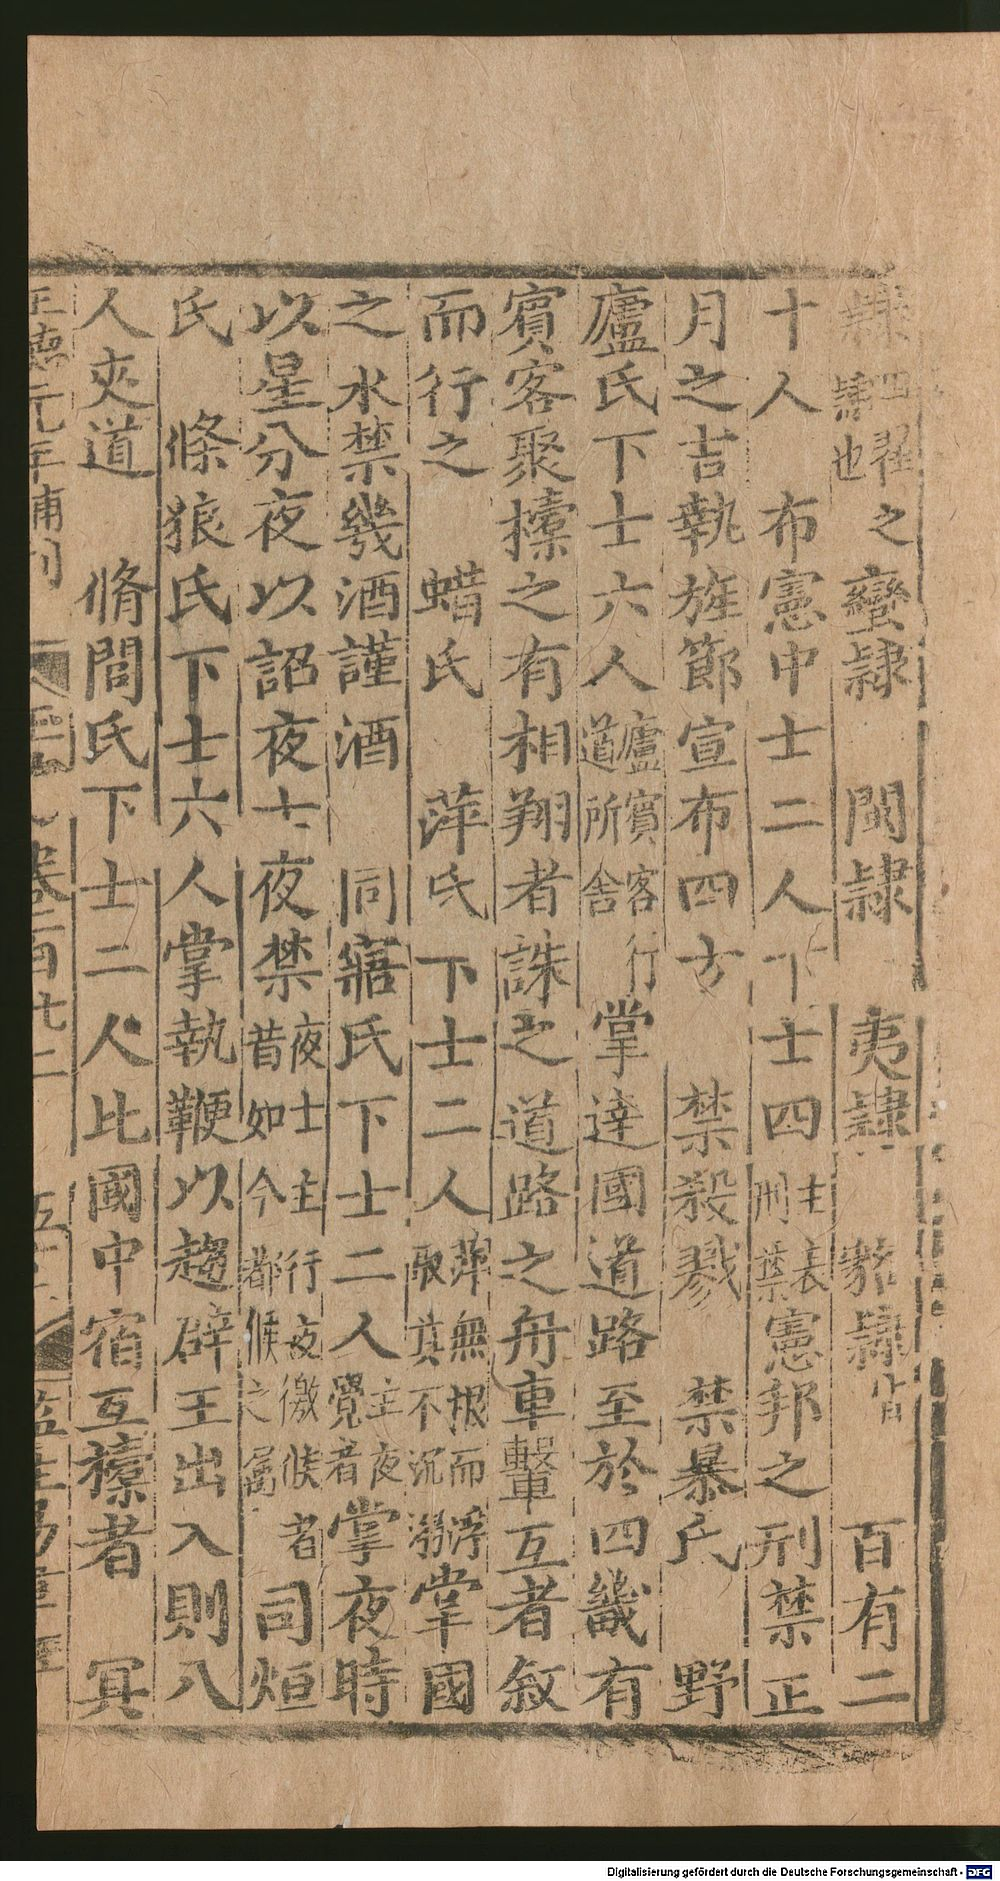 隸四翟之隸也 蠻隸 閩隸 夷隸 貉隸皆百有二
十人 布憲中士二人下士四主表刑禁憲邦之刑禁正
月之吉執旌節宣布四方 禁殺戮 禁暴氏 野
廬氏下士六人廬賓客行道所舍掌達國道路至於四畿有
賓客聚㯓之有相翔者誅之道路之舟車轚互者敘
而行之 蜡氏 萍氏下士二人萍無根而浮取其不沉溺掌國
之水禁幾酒謹酒 司寤氏下士二人主夜覺者掌夜時
以星分夜以詔夜士夜禁夜士主行夜徼候者昔如今都候之屬 司烜
氏 條狼氏下士六人掌執鞭以趨辟王出入則八
人夾道 脩閭氏下士二人比國中宿互㯓者 冥
正德元年補刊 卷二百七二
Digitalisierung gefördert durch die Deutsche Forschungsgemeinschaft - DFG